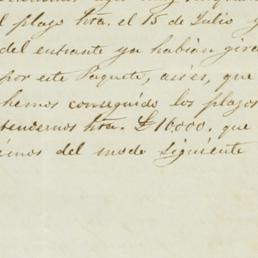 el plazo hta. el 15 de Julio y
del entrante ya habian gira
por este Paquete, asi es, que
hemos conseguido los plazos
tendernos hta. £16,000, que
emos del modo siguiente